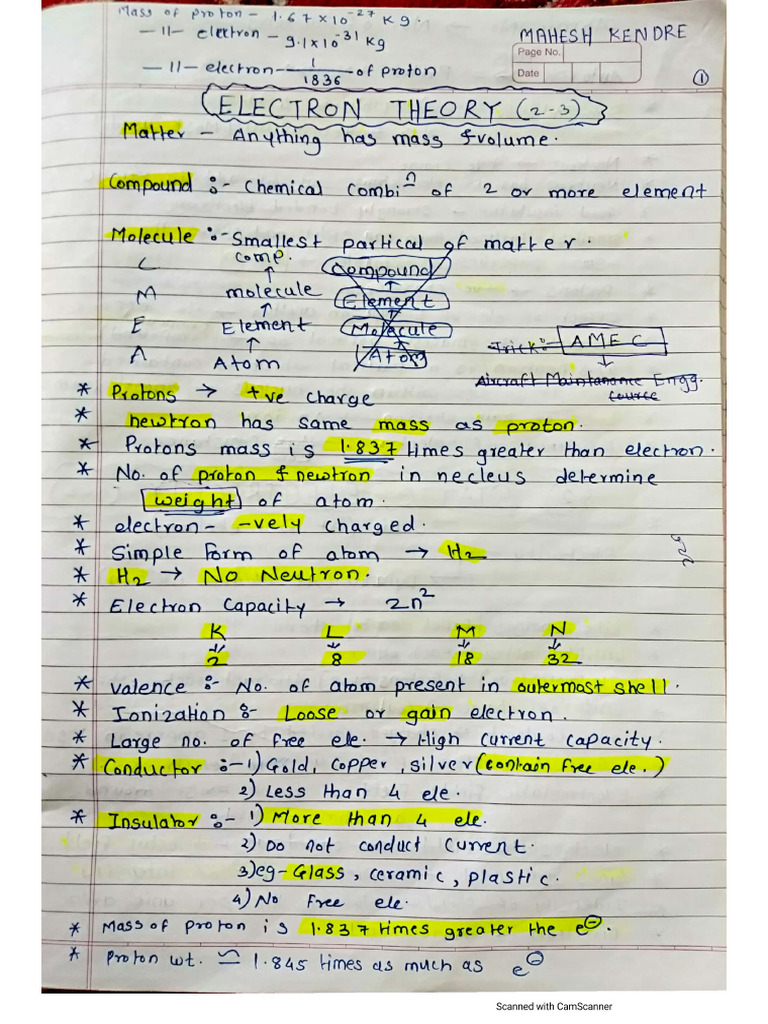 Mass of proton - 1.67×10⁻²⁷ Kg.
—11— elektron - 9.1×10⁻³¹ Kg
MAHESH KENDRE
Page No.
Date
—11— electron - 1/1836 of proton
1
ELECTRON THEORY (2-3)
Matter - Anything has mass & volume.
Compound :- Chemical Combiⁿ of 2 or more element
Molecule :- Smallest partical of matter.
C comp. Compound
M molecule Element
E Element Molecule
A Atom Atom
Trick:- AMEC
Aircraft Maintanance Engg.
cource
* Protons → +ve charge
* newtron has same mass as proton.
* Protons mass is 1.837 times greater than electron.
* No. of proton & newtron in necleus determine
weight of atom.
* electron- -vely charged.
* Simple form of atom → H₂
* H₂ → No Neutron.
* Electron Capacity → 2n²
K L M N
2 8 18 32
* Valence :- No. of atom present in outermost shell.
* Ionization :- Loose or gain electron.
* Large no. of free ele. → High current capacity.
* Conductor :- 1) Gold, Copper, silver (contain free ele.)
2) Less than 4 ele.
* Insulator :- 1) More than 4 ele.
2) Do not conduct current.
3) eg- Glass, ceramic, plastic.
4) No Free ele.
* Mass of proton is 1.837 times greater the e⊖.
* Proton wt. ≃ 1.845 times as much as e⊖
Scanned with CamScanner